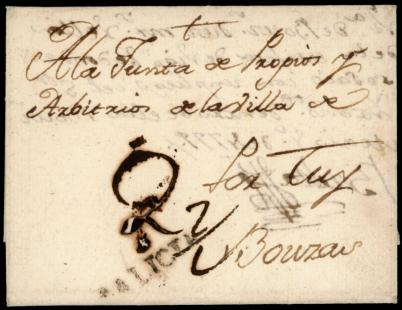 A la Junta de Propios y
Arbitrios de la Villa de
por Tuy
Bouzas
GALICIA